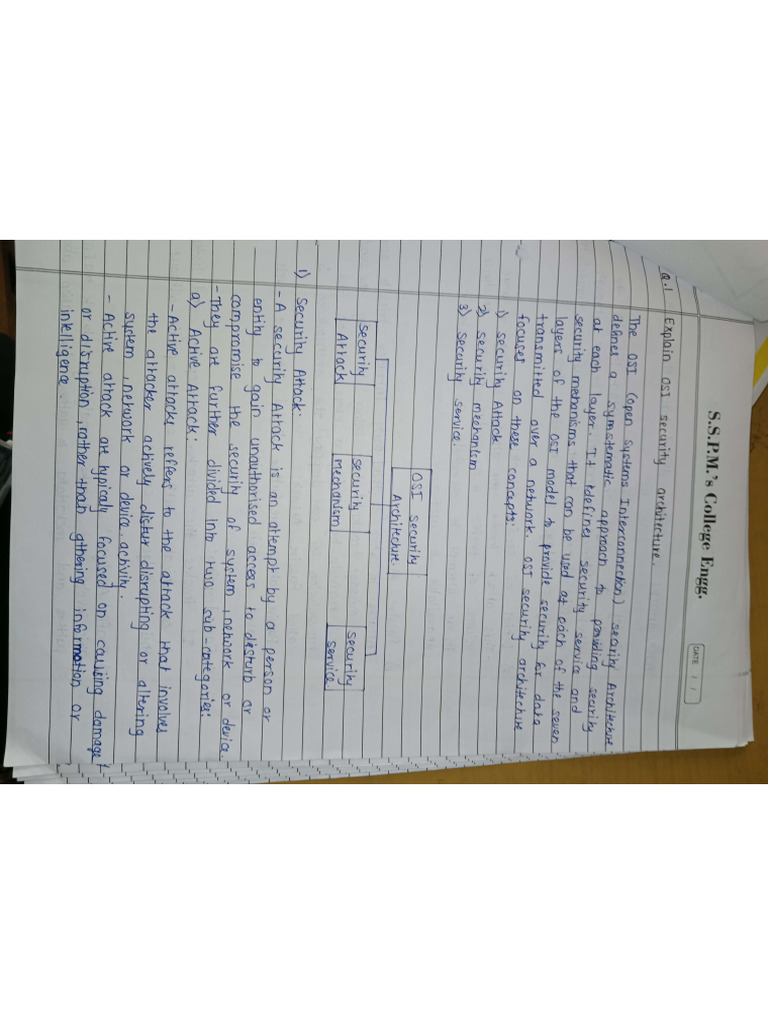 S.S.P.M.'s College Engg.
DATE / /
Q.1 Explain OSI security architecture.
The OSI (open Systems Interconnection) security Architecture
defines a symstematic approach to providing security
at each layer. It defines security service and
security mechanisms that can be used at each of the seven
layers of the OSI model to provide security for data
transmitted over a network. OSI security architecture
focuses on these concepts:
1) security Attack
2) security mechanism
3) security service.
OSI security
Architecture
security
Attack
security
mechanism
security
service
1) Security Attack:
- A security Attack is an attempt by a person or
entity to gain unauthorised access to disturb or
compromise the security of system, network or device.
- They are further divided into two sub-categories:
a) Active Attack:
- Active attacks reffers to the attack that involves
the attacker actively distur disrupting or altering
system, network or device activity.
- Active attack are typicaly focused on causing damage
or disruption, rather than gthering information or
intelligence.